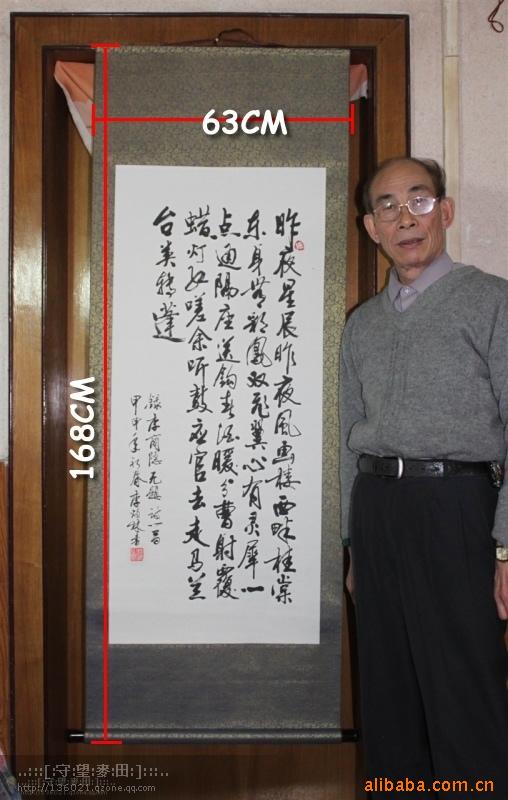 63CM
168CM
昨夜星辰昨夜风画楼西畔桂棠
东身無彩鳳双飞翼心有灵犀一
点通隔座送钩春酒暖分曹射覆
蜡灯红嗟余听鼓应官去走马兰
台类转蓬
録李商隐无题诗一首
甲申年
..:::[:守望麥田:]:::..
http://136021.qzone.qq.com
alibaba.com.cn